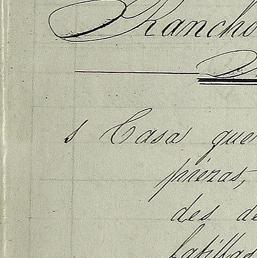 Rancho
1 Casa que
piezas,
des de